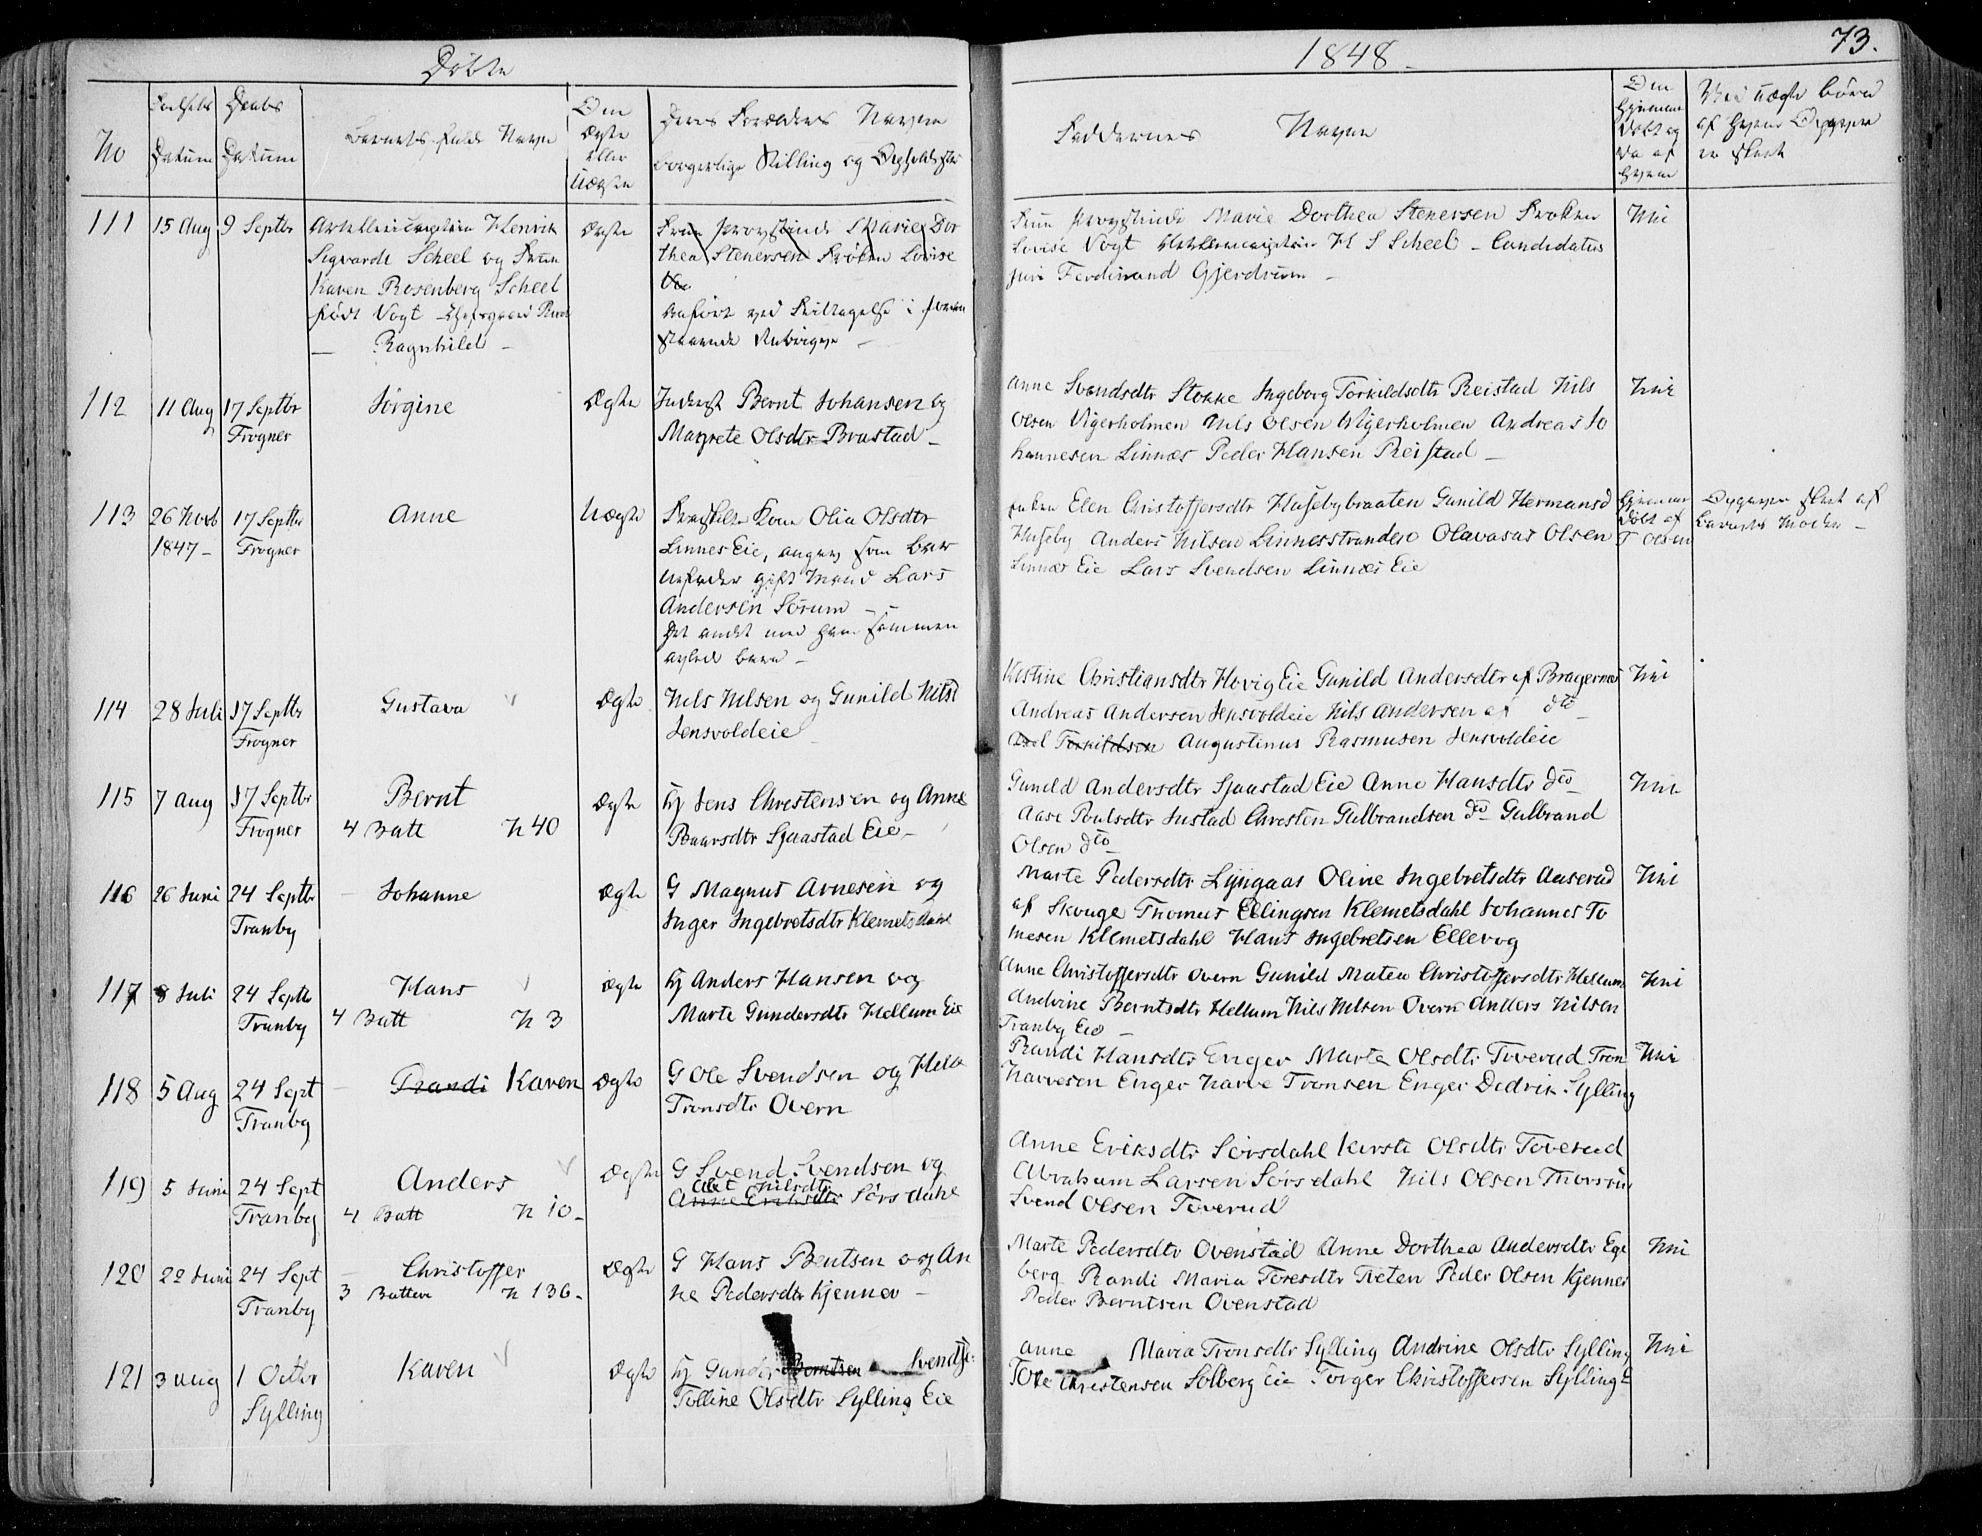 Døbte
1848.
73.
No
Fødsels Datum
Daabs Datum
Barnets fulde Navn
Om Ægte eller Uægte
Deres Forældres Navne
borgerlige Stilling og Opholdsted
Faddernes Navne
Om hjemmedøbt og da af hvem
Ved uægte børn af hvem Opgaven er skeet
111 15 Aug 9 Septbr
Artelleriecapitain Henrik
Sigvardt Scheel og Frue
Karen Rosenberg Scheel
født Vogt
Ragnhild
Ægte
Frue Provstinde Marie Dor
thea Stenersen Frøken Lovise
Vo
anført ved Feiltagelse i foran
staaende Rubrique
Frue Provstinde Marie Dorthea Stenersen Frøken
Lovise Vogt Artelleriecapitain H S Scheel - Candidatus
juris Ferdinand Gjerdrum -
Nei
112 11 Aug 17 Septbr
Frogner
Jørgine
Ægte
Inderst Bernt Johansen og
Margrete Olsdtr Brastad -
Anne Svendsdtr Stokke Ingeborg Torkildsdtr Reistad Nils
Olsen Vigerholmen Nils Olsen Wigerholmen Andreas Jo
hannesen Linnæs Peder Hansen Reistad -
Nei
113 26 Novb 17 Septbr
1847 - Frogner
Anne
Uægte
Kone Olia Olsdtr
Linnes Eie, angav som Bar
nefader gift Mand Lars
Andersen Sørum -
Det andet med ham sammen
avlede barn -
Enken Elen Christoffersdtr Husebybraaten Gunild Hermansd
Huseby Anders Nilsen Linnesstranden Olavasas Olsen
Linnæs Eie Lars Svendsen Linnæs Eie
Hjemme
døbt af
T Olsen
Opgaven skeet af
Barnets Moder -
114 28 Juli 17 Septbr
Frogner
Gustava
Ægte
Nils Nilsen og Gunild Nilsd
Jensvoldeie
Kistine Christiansdtr Hovig Eie Gunild Andersdtr af Bragernæs
Andreas Andersen Jensvoldeie Nils Andersen af dto
Axel Torkildsen Augustinus Rasmusen Jensvoldeie
Nei
115 7 Aug 17 Septbr
Frogner
Bernt
4 Batt N 40
Ægte
Hj Jens Christensen og Anne
Paarsdtr Sjaastad Eie -
Gunild Andersdtr Sjaastad Eie Anne Hansdtr dto
Aase Poulsdtr Justad Christen Gulbrandsen do Gulbrand
Olsen dto
Nei
116 26 Juni 24 Septbr
Tranby
- Johanne
Ægte
G Magnus Arnesen og
Inger Ingebretsdtr Klemetsdahl
Marte Pedersdtr Lyngaas Oline Ingebretsdtr Aaserud
af Skouge Thomas Ellingsen Klemetsdahl Johannes To
mesen Klemetsdahl Hans Ingebretsen Ellevog
Nei
117 8 Juli 24 Septbr
Tranby
Hans
4 Batt N 3
Ægte
Hj Anders Hansen og
Marte Gundersdtr Hellum Eie
Anne Christoffersdtr Overn Gunild Matea Christoffersdtr Hellum
Andrine Berntsdtr Hellum Nils Nilsen Overn Anders Nilsen
Tranby Eie -
Nei
118 5 Aug 24 Sept
Tranby
- Randi Karen
Ægte
G Ole Svendsen og Helle
Tronsdtr Overn
Randi Hansdtr Enger Marte Olsdtr Toverud Tron
Narvesen Enger Narve Tronsen Enger Dedrik Sylling
Nei
119 5 Juni 24 Sept
Tranby
Anders
4 Batt N 10 -
Ægte
G Svend Svendsen og
Abet Nilsdtr
Anne Eriksdtr Sørsdahl
Anne Eriksdtr Sørsdahl Kirsti Olsdtr Toverud
Abraham Larsen Sørsdahl Nils Olsen Thorsrud
Svend Olsen Toverud
120 22 Juni 24 Sept
Tranby
- Christoffer
3 Batten N 136 -
Ægte
G Hans Bentsen og An
ne Pedersdtr Kjenner -
Marte Pedersdtr Ovenstad Anne Dorthea Andersdtr Ege
berg Randi Maria Toresdtr Tveten Peder Olsen Kjenner
Peder Berntsen Ovenstad
Nei
121 3 Aug 1 Octbr
Sylling
Karen
Ægte
Hj Gunder Berntsen Svendsen
Tolline Olsdtr Sylling Eie
Anne Maria Tronsdtr Sylling Andrine Olsdtr Sylling
Tore Christensen Solberg Eie Torger Christoffersen Sylling E
Nei